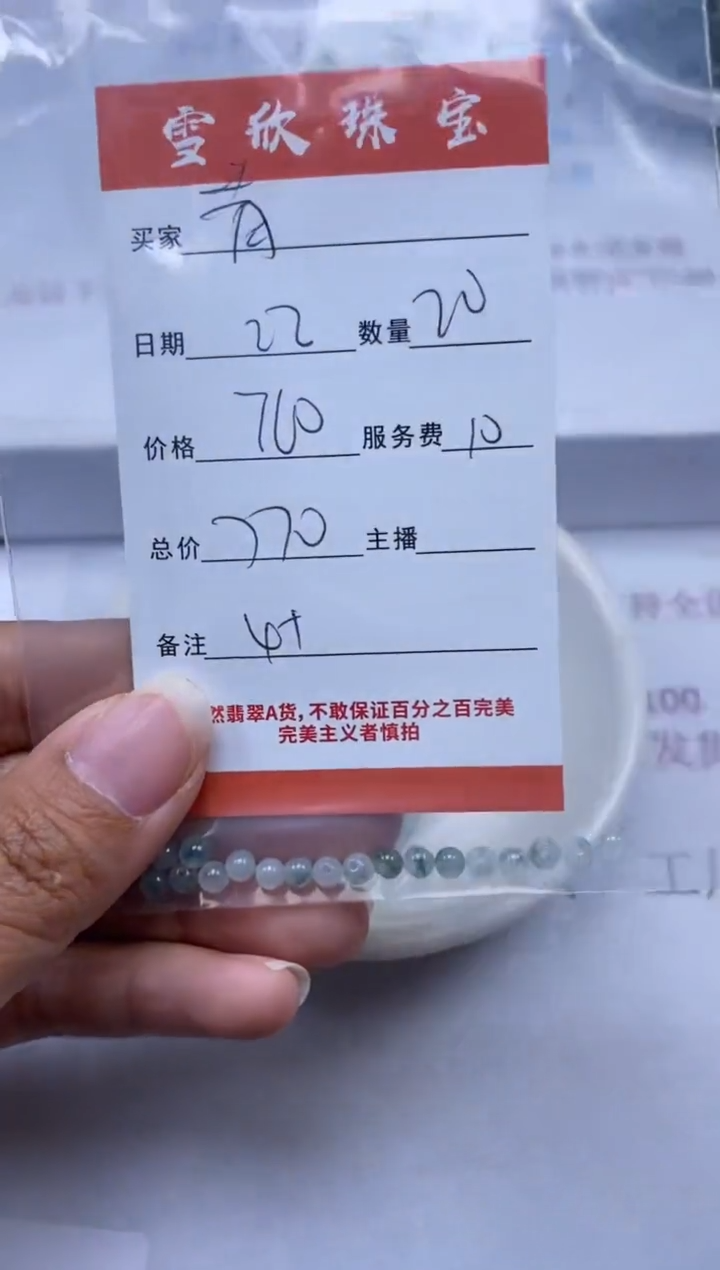 雪欣珠宝
买家 青
日期 22 数量 20
价格 760 服务费 10
总价 770 主播
备注 4+
然翡翠A货,不敢保证百分之百完美
完美主义者慎拍
100